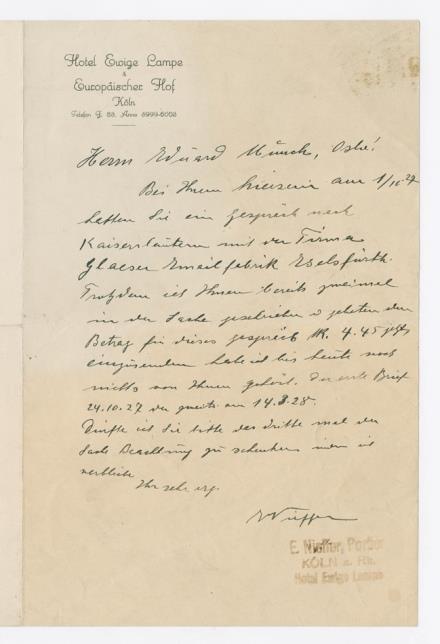 Hotel Ewige Lampe
&
Europäischer Hof
Köln
Telefon
Herrn Eduard Munch, Oslo!
Bei Ihrem hiersein am 1/10 27
hatten Sie ein Gespräch nach
Kaiserslautern mit der Firma
Glaeser Emailfabrik Eselsfürth.
Trotzdem ich Ihnen bereits zweimal
in der Sache geschrieben u gebeten den
Betrag für dieses Gespräch M. 4.45
einzusenden habe ich bis heute noch
nichts von Ihnen gehört. Der erste Brief
24.10.27 der zweite am 14.3.28.
Dürfte ich Sie bitte das dritte mal der
Sache Beachtung zu schenken indem ich
verbleibe
Ihr sehr erg.
E. Nieffer, Portier
KÖLN a. Rh.
Hotel Ewige Lampe